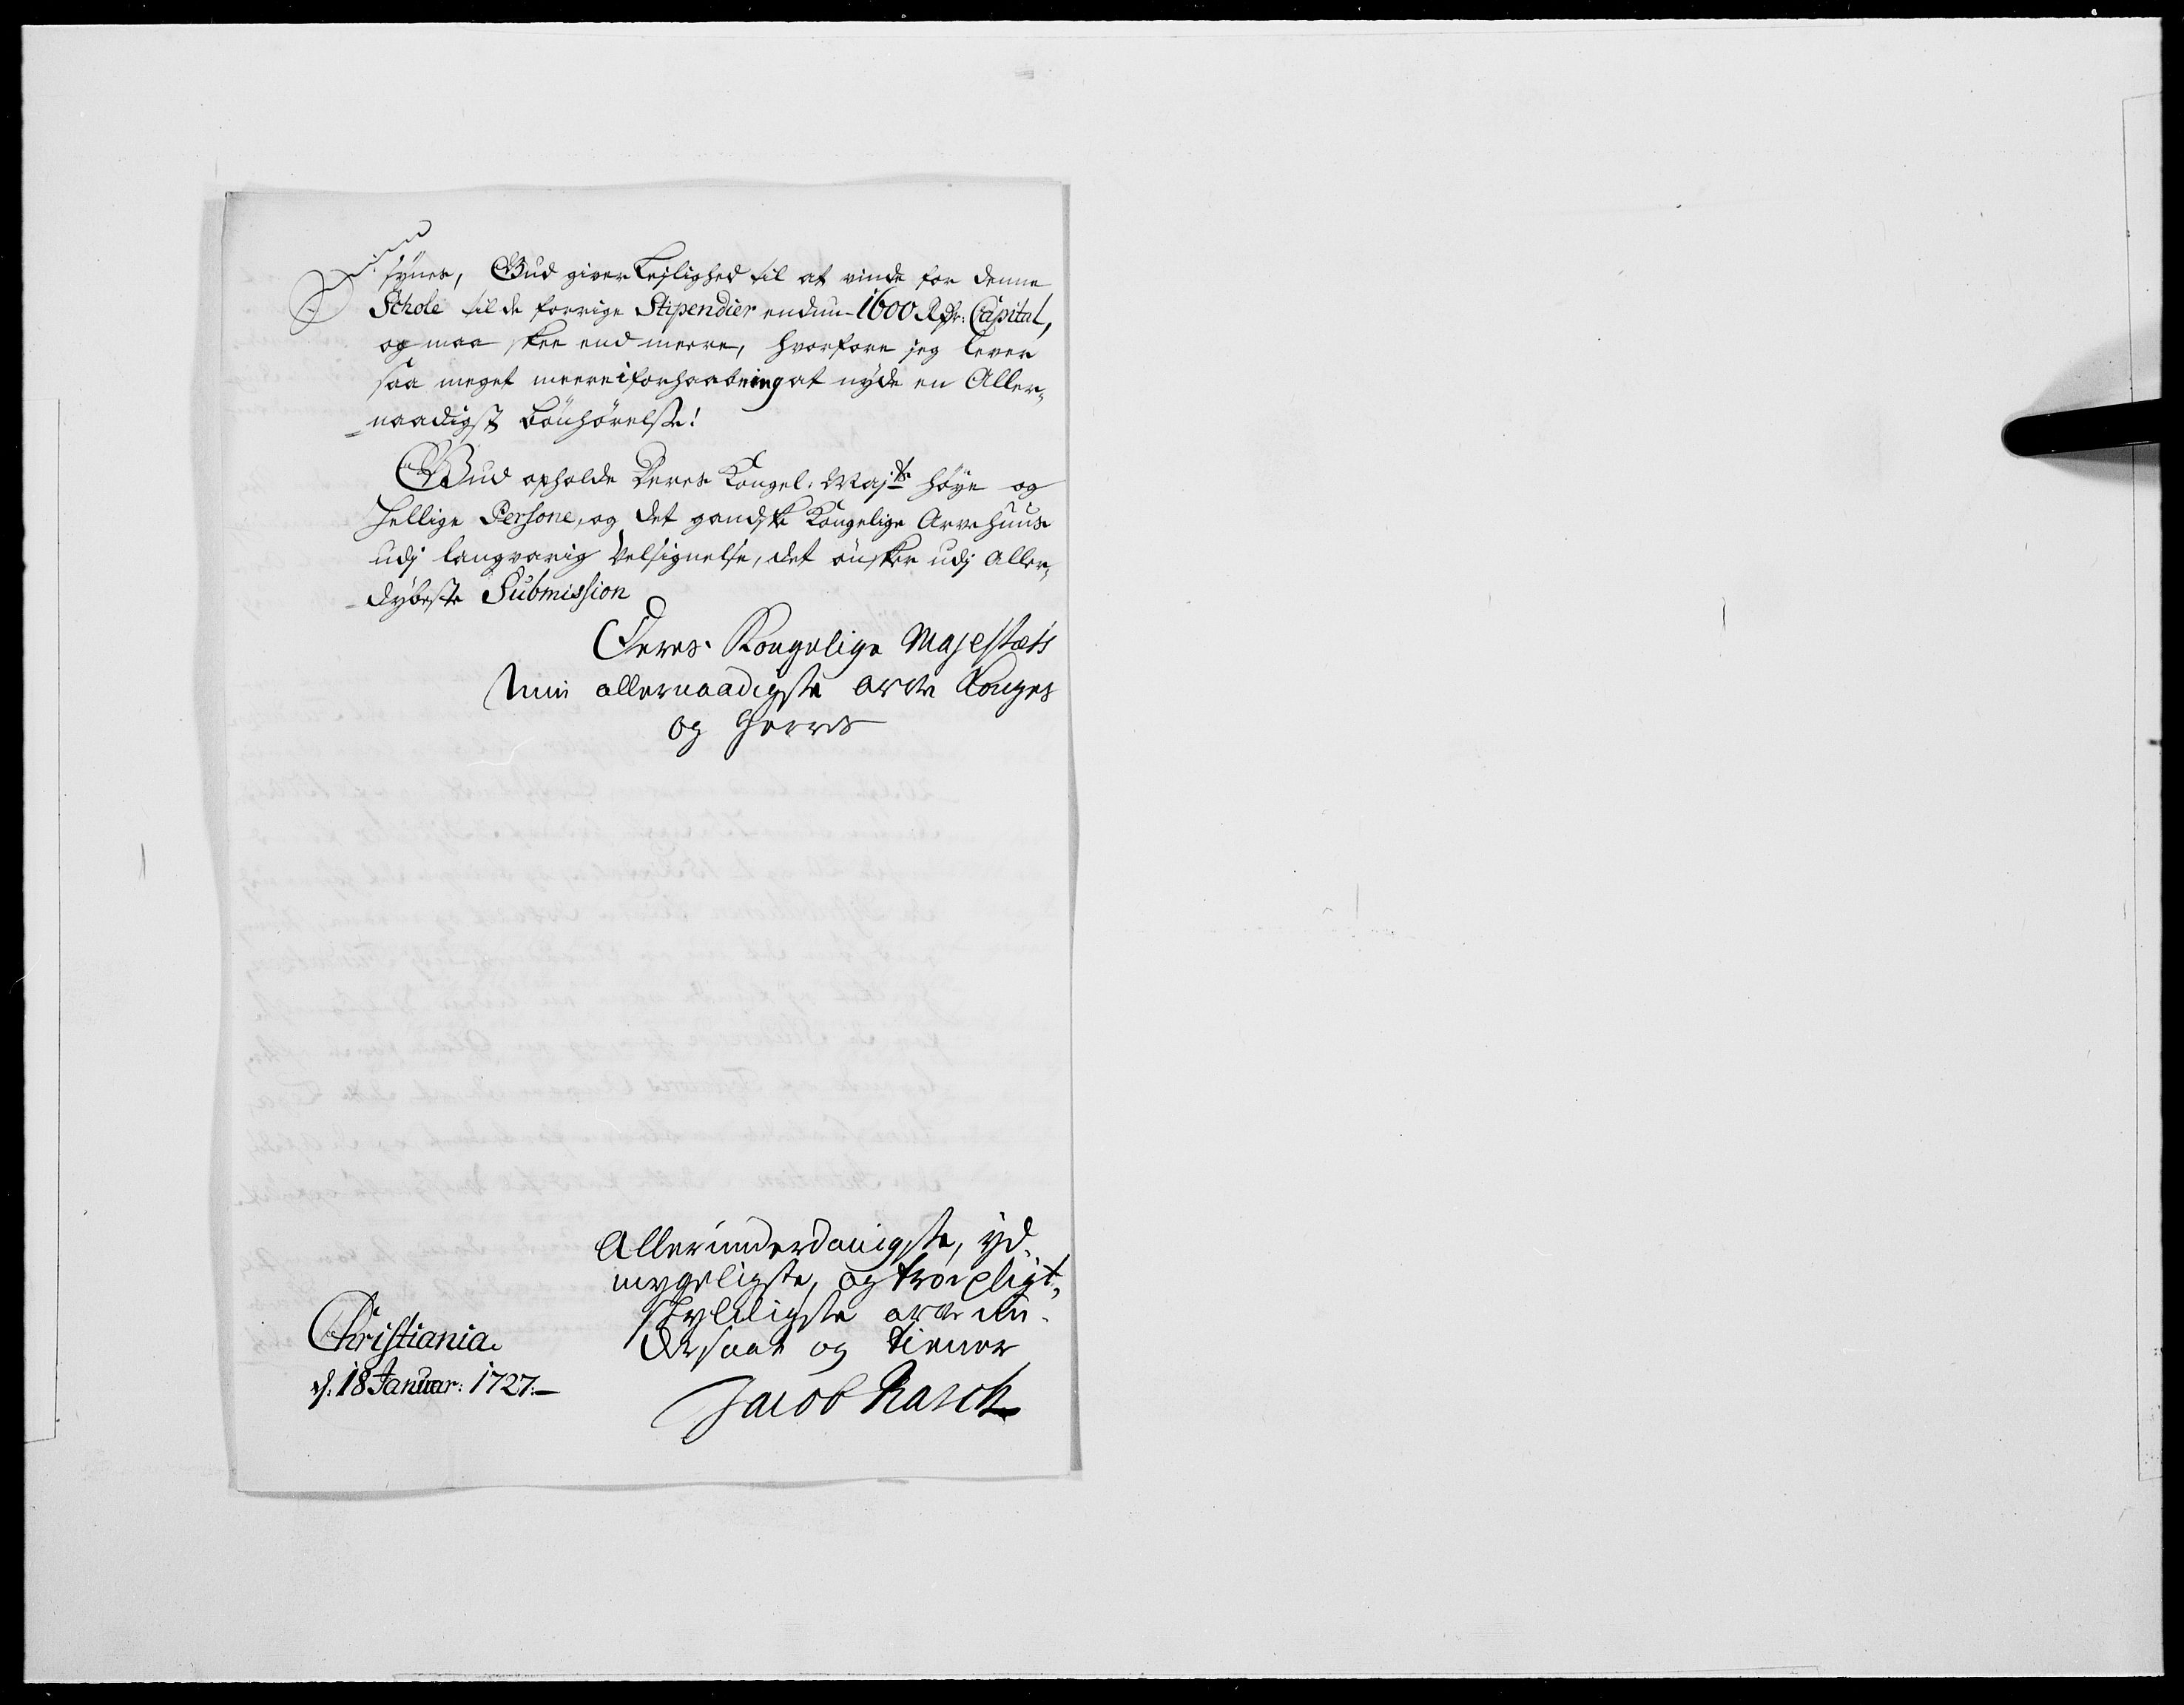 synes, Gud giver Lejlighed til at vinde for denne
Schole til de forrige Stipendier endnu 1600 Rdr: Capital,
og maa skee end meere, hvorfore jeg lever
saa meget meere i forhaabning at nyde en Aller„
„naadigst bönhörelse!
Gud opholde Deres Kongel: Majts höye og
hellige Persone, og det gandske Kongelige Arvehuus
udj langvarig Velsignelse, det önsker udj Aller„
„dybeste Submission
Deres Kongelige Majestæts
Min allernaadigste arve Konges
og Herres
Allerunderdanigste, yd„
mygeligste, og troepligt„
skyldigste arve un„
dersaat og tiener
Jacob Rasch
Christiania
d: 18 Januar: 1727.